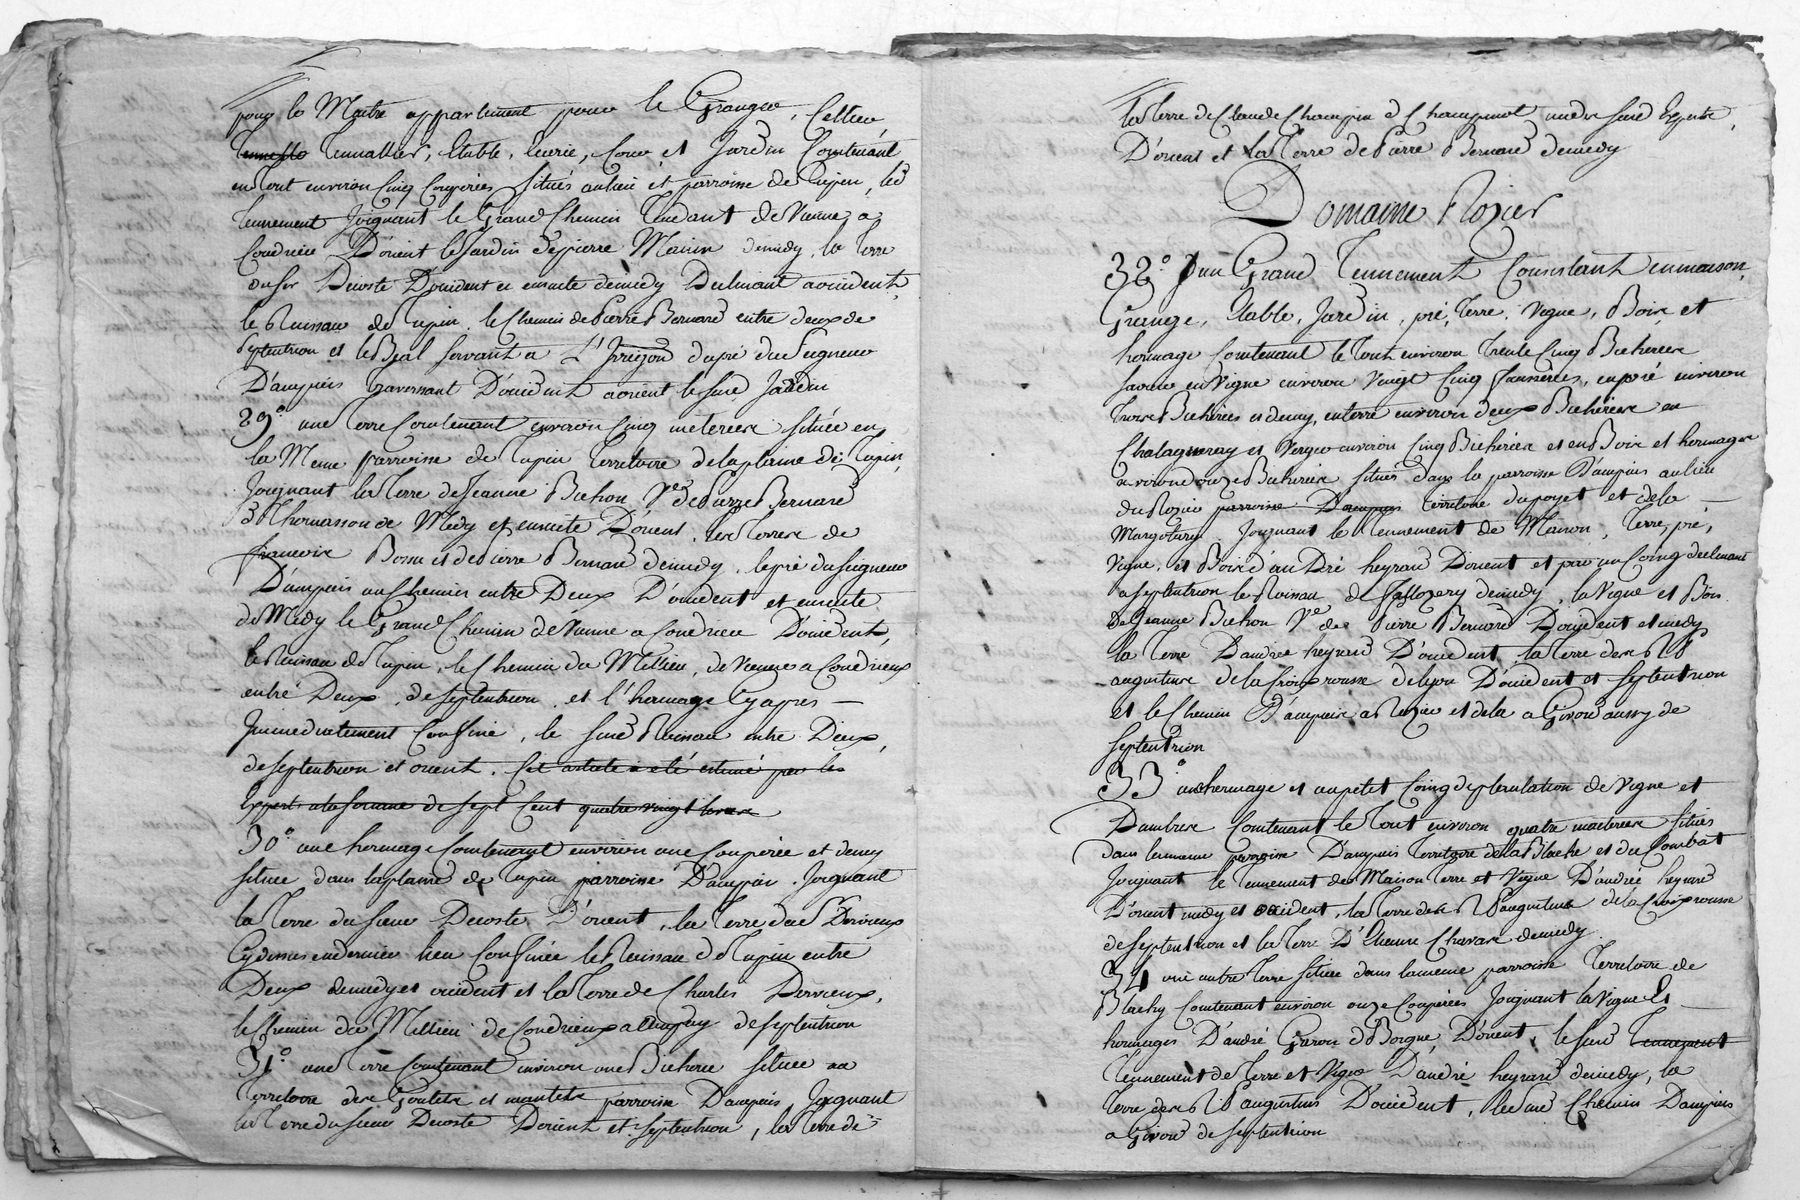 pour le Maitre appartement pour le Granger, Cellier
Tennallier, Etable, Ecurie, Cour, et Jardin Contenant
en Tout environ Cinq Couperées Situés au lieu et parroisse de Tupin, led
Tennement Joignant le Grand Chemin Tendant de Vienne a
Condrieu D'orient le Jardin de pierre Marin de midy, la Terre
du Sr Decoste D'occident et ensuite de midy Declinant a occident,
le Ruisseau de Tupin, le Chemin de Pierre Bernard entre deux de
Septentrion et le Béal Servant a L' du pré du Seigneur
D'ampuis Traversant D'occident a orient le sud Jardin
29° une Terre Contenant environ Cinq meterées Située en
la Meme parroisse de Tupin Territoire de la plaine de Tupin,
Joignant la Terre de Jeanne Bichon Ve de Pierre Bernard
Thomasson de Midy et ensuite D'orient, les Terres de
francoise et de Pierre Bernard de midy, le pré du Seigneur
D'ampuis un Chemin entre Deux D'occident et ensuite
de Midy le Grand Chemin de Vienne a Condrieu D'occident,
le Ruisseau de Tupin, le Chemin du Millieu de Vienne a Condrieux
entre Deux, de Septentrion, et l'hermage Cy apres —
Immediatement Confiné, le sud Ruisseau entre Deux,
de Septentrion et orient. Cet article a eté estimé par les
Experts a la somme de Sept Cent quatre vingt livres
30° une hermage Contenant environ une Couperée et demy
Située dans la plaine de Tupin parroisse D'ampuis, Joignant
la Terre du Sieur Decoste D'orient, la Terre dud Dervieux
Cydessus en dernier lieu Confinée le Ruisseau de Tupin entre
Deux de midy et occident et la Terre de Charles Dervieux,
le Chemin du Millieu de Condrieux a de Septentrion
31° une Terre Contenant environ une Bicherée Située au
Territoire des Goutets et parroisse D'ampuis, Joignant
la Terre du Sieur Decoste D'orient et Septentrion, la Terre de
la Terre de Claude Champin
D'orient et La Terre de Pierre Bernard de midy
Domaine Rozier
32° un Grand Tennement Consistant en maison,
Grange, Etable, Jardin, pré, Terre, Vigne, Bois, et
hermage Contenant le Tout environ Trente Cinq Bicherées
Savoir en Vigne environ Vingt Cinq fausserées, en pré environ
Trois Bicherées et demy, en terre environ deux Bicherées en
et Verger environ Cinq Bicherées et en Bois et hermages
environ onze Bicherées Situés dans la parroisse D'ampuis au lieu
du Rozier parroisse D'ampuis Territoire du poyet et de la —
Joignant le Tennement de Maison, Terre, pré,
Vigne, et Bois d'andré heyraud D'orient et par un Coing declinant
a Septentrion le Ruisseau de de midy, la Vigne et Bois
de Jeanne Bichon Ve de Pierre Bernard D'occident et midy
la Terre D'andré heyraud D'occident, la Terre des RR PP
augustins de la Croixrousse de Lyon D'occident et Septentrion
et le Chemin D'ampuis a Rozier et de la a Givord aussy de
Septentrion
33° un hermage et un petit Coing de plantation de Vigne et
D'arbres Contenant le Tout environ quatre meterées Situés
dans la meme parroisse D'ampuis Territoire de la Blache et du Combat
Joignant le Tennement de Maison Terre et Vigne D'andré heyraud
D'orient midy et occident, la Terre des RR PP augustins de la Croixrousse
de Septentrion et la Terre D'Etienne Chavas de midy
34 une autre Terre Située dans la meme parroisse Territoire de
Blachy Contenant environ onze Couperées Joignant la Vigne Et —
hermages D'andré D'orient, le sud Tennement
Tennement de Terre et Vigne D'andré heyraud de midy, la
Terre des RR PP augustins D'occident, le sud Chemin D'ampuis
a Givord de Septentrion